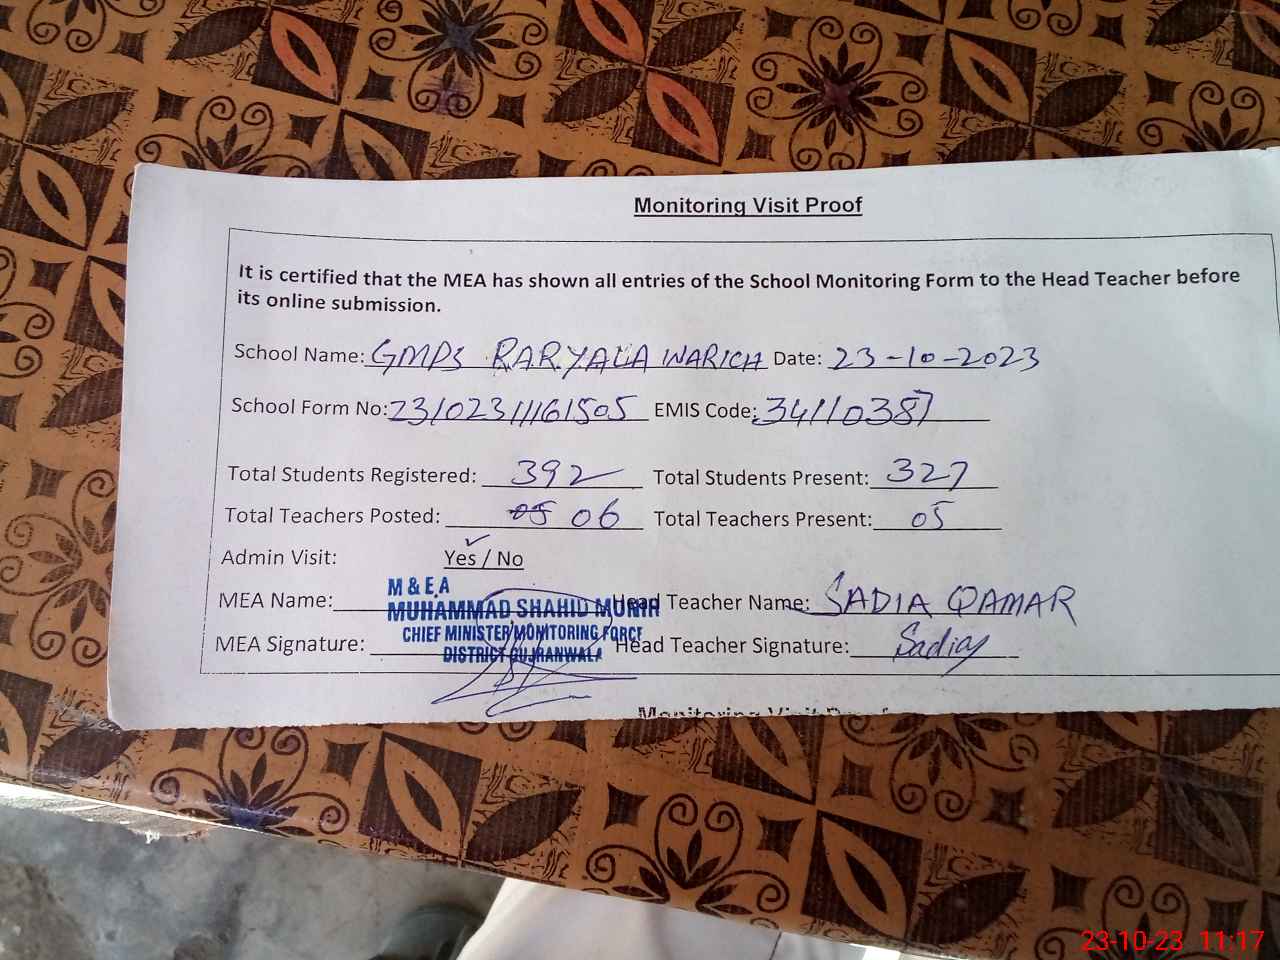 Monitoring Visit Proof
It is certified that the MEA has shown all entries of the School Monitoring Form to the Head Teacher before
its online submission.
School Name: GMPS RARYALA WARICH Date: 23-10-2023
School Form No: 23102311161505 EMIS Code: 34110387
Total Students Registered: 392 Total Students Present: 327
Total Teachers Posted: 05 06 Total Teachers Present: 05
Admin Visit: Yes / No
M & E,A
MEA Name: MUHAMMAD SHAHID MUNIR Head Teacher Name: SADIA QAMAR
CHIEF MINISTER MONITORING FORCE
MEA Signature: DISTRICT GUJRANWALA Head Teacher Signature: Sadia
Monitoring Visit Proof
23-10-23 11:17